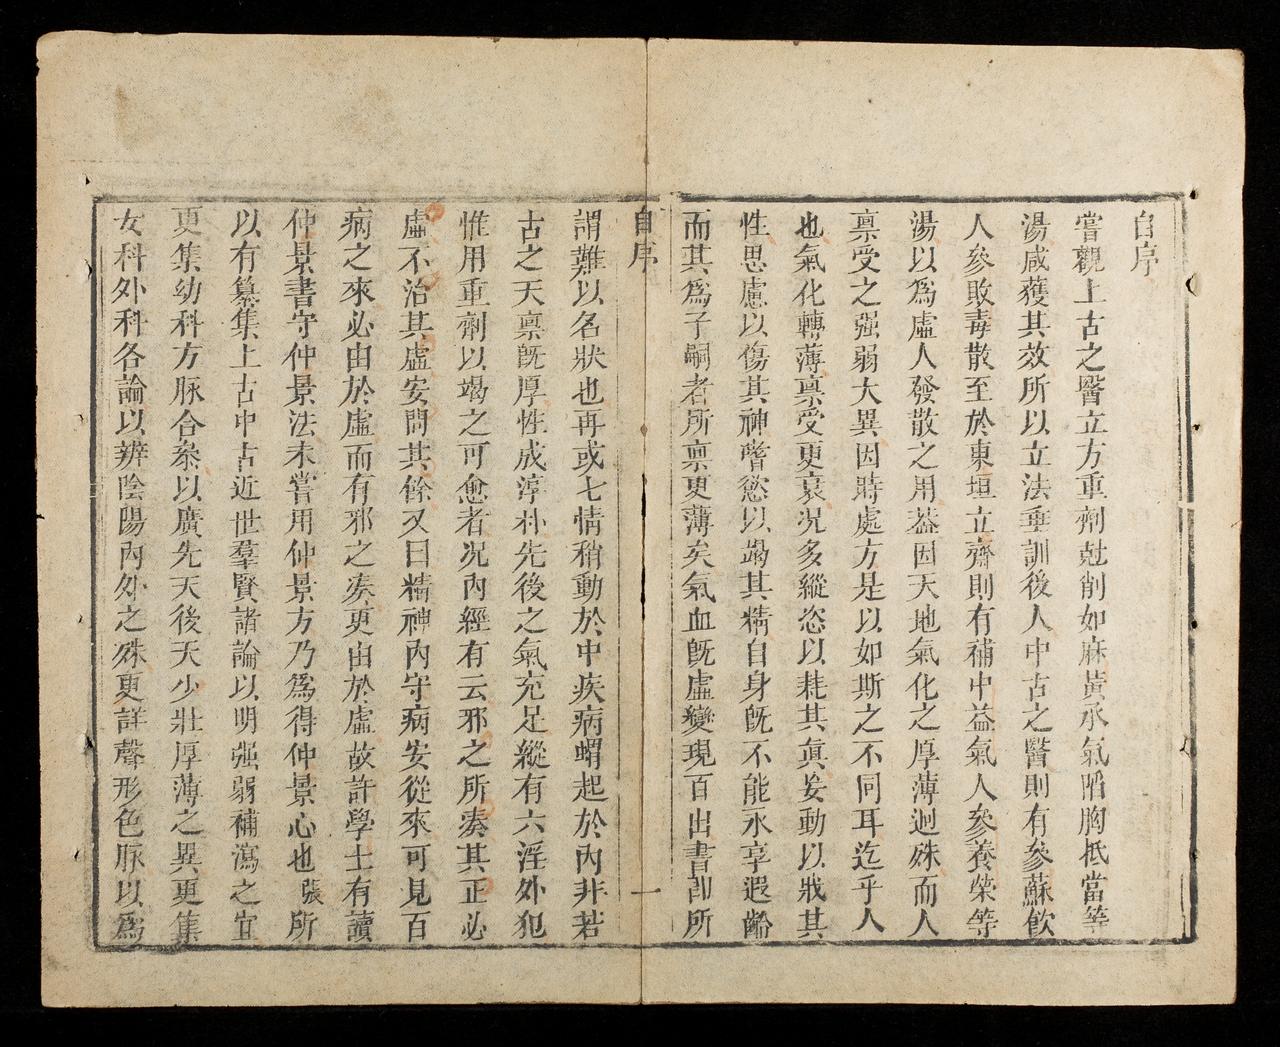 自序
嘗觀上古之醫立方重劑尅削如麻黃承氣陷胸抵當等
湯咸獲其效所以立法垂訓後人中古之醫則有參蘇飲
人參敗毒散至於東垣立齋則有補中益氣人參養榮等
湯以爲虛人發散之用葢因天地氣化之厚薄迥殊而人
禀受之强弱大異因時處方是以如斯之不同耳迄乎人
也氣化轉薄禀受更衰况多縱恣以耗其眞妄動以戕其
性思慮以傷其神嗜慾以竭其精自身旣不能永享遐齡
而其爲子嗣者所禀更薄矣氣血旣虛變現百出書卽所
自序
一
謂難以名狀也再或七情稍動於中疾病蝟起於內非若
古之天禀旣厚性成淳朴先後之氣充足縱有六淫外犯
惟用重劑以竭之可愈者况內經有云邪之所凑其正必
虛不治其虛安問其餘又曰精神內守病安從來可見百
病之來必由於虛而有邪之凑更由於虛故許學士有讀
仲景書守仲景法未嘗用仲景方乃爲得仲景心也張所
以有纂集上古中古近世羣賢諸論以明强弱補瀉之宜
更集幼科方脉合叅以廣先天後天少壯厚薄之異更集
女科外科各論以辨陰陽內外之殊更詳聲形色脉以爲